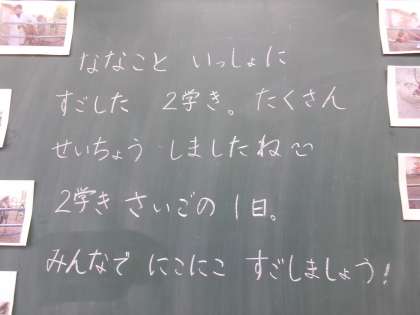 ななこと いっしょに
すごした 2学き。たくさん
せいちょう しましたね
2学き さいごの 1日。
みんなで にこにこ すごしましょう!